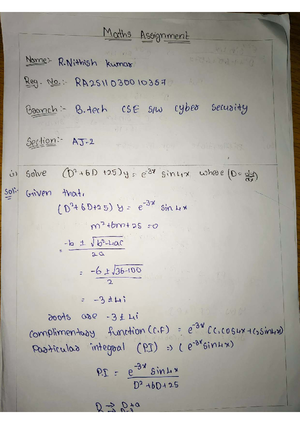 Maths Assignment
Name:- R.Nithish kumar
Reg. No:- RA2511030010357
Branch:- B.tech CSE s/w cyber security
Section:- AJ-2
1) Solve (D²+6D+25)y = e^-3x sin4x where (D = d/dx)
Sol:- Given that,
(D²+6D+25) y = e^-3x sin4x
m²+6m+25 = 0
= -b ± √b²-4ac / 2a
= -6 ± √36-100 / 2
= -3 ± 4i
roots are -3 ± 4i
complimentary function (C.F) = e^-3x (c₁cos4x+c₂sin4x)
Particular integral (P.I) => (e^-3x sin4x)
P.I = e^-3x sin4x / D²+6D+25
D → D+a